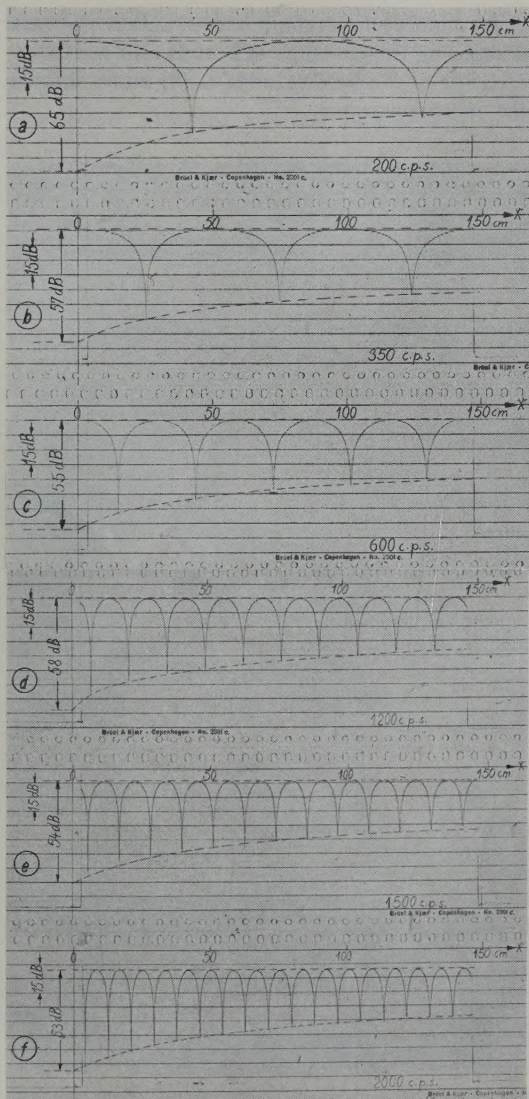 0 50 100 150 cm X
15dB
65 dB
a
200 c.p.s.
Brüel & Kjær - Copenhagen - No. 2301 c.
0 50 100 150 cm X
15dB
57dB
b
350 c.p.s.
Brüel & Kjær - C
0 50 100 150 cm X
15dB
55 dB
c
600 c.p.s.
Brüel & Kjær - Copenhagen - No. 2301 c.
0 50 100 150 cm X
15dB
58 dB
d
1200 c.p.s.
Brüel & Kjær - Copenhagen - No. 2301 c.
0 50 100 150 cm X
15dB
54dB
e
1500 c.p.s.
Brüel & Kjær - Copenhagen - No. 2301 c.
0 50 100 150 cm X
15dB
53dB
f
2000 c.p.s.
Brüel & Kjær - Copenhagen - N